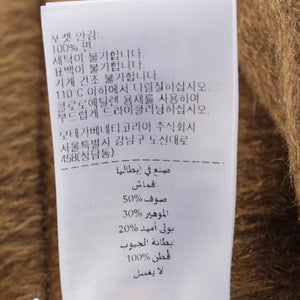 포켓 안감:
100% 면
세탁이 불가합니다.
표백이 불가합니다.
기계 건조 불가합니다.
110℃ 이하에서 다림질하십시오.
클로로에틸렌 용제를 사용하여
부드럽게 드라이클리닝하십시오.
보테가베네타코리아 주식회사
서울특별시 강남구 도산대로
458(청담동)
صنع في إيطاليا
قماش:
50% صوف
30% الموهير
20% بولى أميد
بطانة الجيوب:
100% قُطن
لا يغسل